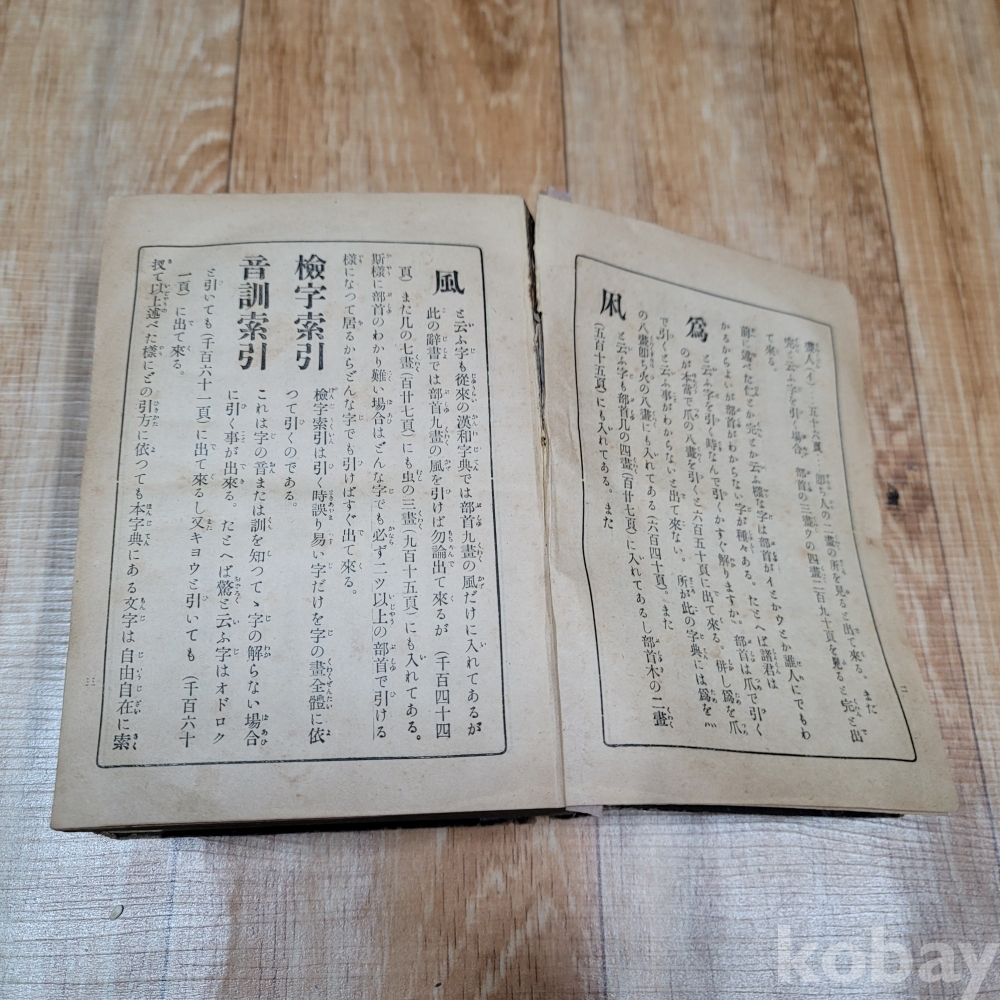 畫人（イ）…五十六頁。卽ち人の二畫の所を見ると出て來る。また
完と云ふ字を引く場合、部首の三畫ウの四畫二百九十頁を見ると完と出
て來る。
前に述べた仁とか完とか云ふ樣な字は部首がイとかウとか誰人にでもわ
かるからよいが部首がわからない字が種々ある。たとへば諸君は
爲
と云ふ字を引く時なんで引くかすぐ解りますか。部首は爪で引く
のが本當で爪の八畫を引くと六百五十頁に出て來る。併し爲を爪
で引くと云ふ事がわからないと出て來ない。所が此の字典には爲を灬
の八畫卽ち火の八畫にも入れてある（六百四十頁）。また
凩
と云ふ字も部首几の四畫（百廿七頁）に入れてあるし部首木の二畫
（五百十五頁）にも入れてある。また
二
風
と云ふ字も從來の漢和字典では部首九畫の風だけに入れてあるが
此の辭書では部首九畫の風を引けば勿論出て來るが（千百四十四
頁）また几の七畫（百廿七頁）にも虫の三畫（九百十五頁）にも入れてある。
斯樣に部首のわかり難い場合はどんな字でも必ず二ツ以上の部首で引ける
樣になつて居るからどんな字でも引けばすぐ出て來る。
檢字索引
檢字索引は引く時誤り易い字だけを字の畫全體に依
つて引くのである。
音訓索引
これは字の音または訓を知つてゝ字の解らない場合
に引く事が出來る。たとへば驚と云ふ字はオドロク
と引いても（千百六十一頁）に出て來るし又キョウと引いても（千百六十
一頁）に出て來る。
扨て以上述べた樣にどの引方に依つても本字典にある文字は自由自在に索
三
kobay